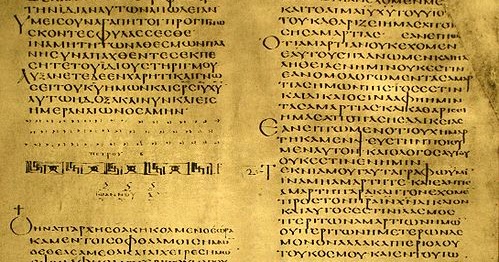 ΤΗΝΙΔΙΑΝΑΥΤΩΝΑΠΩΛΕΙΑΝ
ΥΜΕΙϹΟΥΝΑΓΑΠΗΤΟΙΠΡΟΓΙΝΩ
ϹΚΟΝΤΕϹΦΥΛΑϹϹΕϹΘΕ
ΙΝΑΜΗΤΗΤΩΝΑΘΕϹΜΩΝΠΛΑ
ΝΗϹΥΝΑΠΑΧΘΕΝΤΕϹΕΚΠΕ
ϹΗΤΕΤΟΥΙΔΙΟΥϹΤΗΡΙΓΜΟΥ
ΑΥΞΑΝΕΤΕΔΕΕΝΧΑΡΙΤΙΚΑΙΓΝΩ
ϹΕΙΤΟΥΚΥΗΜΩΝΚΑΙϹΡϹΙΥΧΥ
ΑΥΤΩΗΔΟΞΑΚΑΙΝΥΝΚΑΙΕΙϹ
ΗΜΕΡΑΝΑΙΩΝΟϹΑΜΗΝ
ΠΕΤΡΟΥ Β
ΙΩΑΝΝΟΥ Α
ΟΗΝΑΠΑΡΧΗϹΟΑΚΗΚΟΑΜΕΝΟΕΩΡΑ
ΚΑΜΕΝΤΟΙϹΟΦΘΑΛΜΟΙϹΗΜΩ
ΟΕΘΕΑϹΑΜΕΘΑΚΑΙΑΙΧΕΙΡΕϹΗΜΩ
ΚΑΙΤΟΑΙΜΑΙΥΧΥΤΟΥΥΙΟΥΑΥ
ΤΟΥΚΑΘΑΡΙΖΕΙΗΜΑϹΑΠΟΠΑ
ϹΗϹΑΜΑΡΤΙΑϹ ΕΑΝΕΙΠΩ
ΟΤΙΑΜΑΡΤΙΑΝΟΥΚΕΧΟΜΕΝ
ΕΑΥΤΟΥϹΠΛΑΝΩΜΕΝΚΑΙΗ
ΑΛΗΘΕΙΑΕΝΗΜΙΝΟΥΚΕϹΤΙΝ
ΕΑΝΟΜΟΛΟΓΩΜΕΝΤΑϹΑΜΑΡ
ΤΙΑϹΗΜΩΝΠΙϹΤΟϹΕϹΤΙΝ
ΚΑΙΔΙΚΑΙΟϹΙΝΑΑΦΗΗΜΙΝ
ΤΑϹΑΜΑΡΤΙΑϹΚΑΙΚΑΘΑΡΙϹΗ
ΗΜΑϹΑΠΟΠΑϹΗϹΑΔΙΚΕΙΑϹ
ΕΑΝΕΙΠΩΜΕΝΟΤΙΟΥΧΗΜΑΡ
ΤΗΚΑΜΕΝΨΕΥϹΤΗΝΠΟΙΟΥ
ΜΕΝΑΥΤΟΝΚΑΙΟΛΟΓΟϹΑΥΤΟΥ
ΟΥΚΕϹΤΙΝΕΝΗΜΙΝ
ΤΕΚΝΙΑΜΟΥΤΑΥΤΑΓΡΑΦΩΥΜΙ
ΙΝΑΜΗΑΜΑΡΤΗΤΕΚΑΙΕΑΝΤΙϹ
ΑΜΑΡΤΗΠΑΡΑΚΛΗΤΟΝΕΧΟΜΕ
ΠΡΟϹΤΟΝΠΡΑΙΝΧΝΔΙΚΑΙΟΝ
ΚΑΙΑΥΤΟϹΕϹΤΙΝΙΛΑϹΜΟϹ
ΠΕΡΙΤΩΝΑΜΑΡΤΙΩΝΗΜΩ
ΟΥΠΕΡΙΤΩΝΗΜΕΤΕΡΩΝΔΕ
ΜΟΝΟΝΑΛΛΑΚΑΙΠΕΡΙΟΛΟΥ
ΤΟΥΚΟϹΜΟΥ